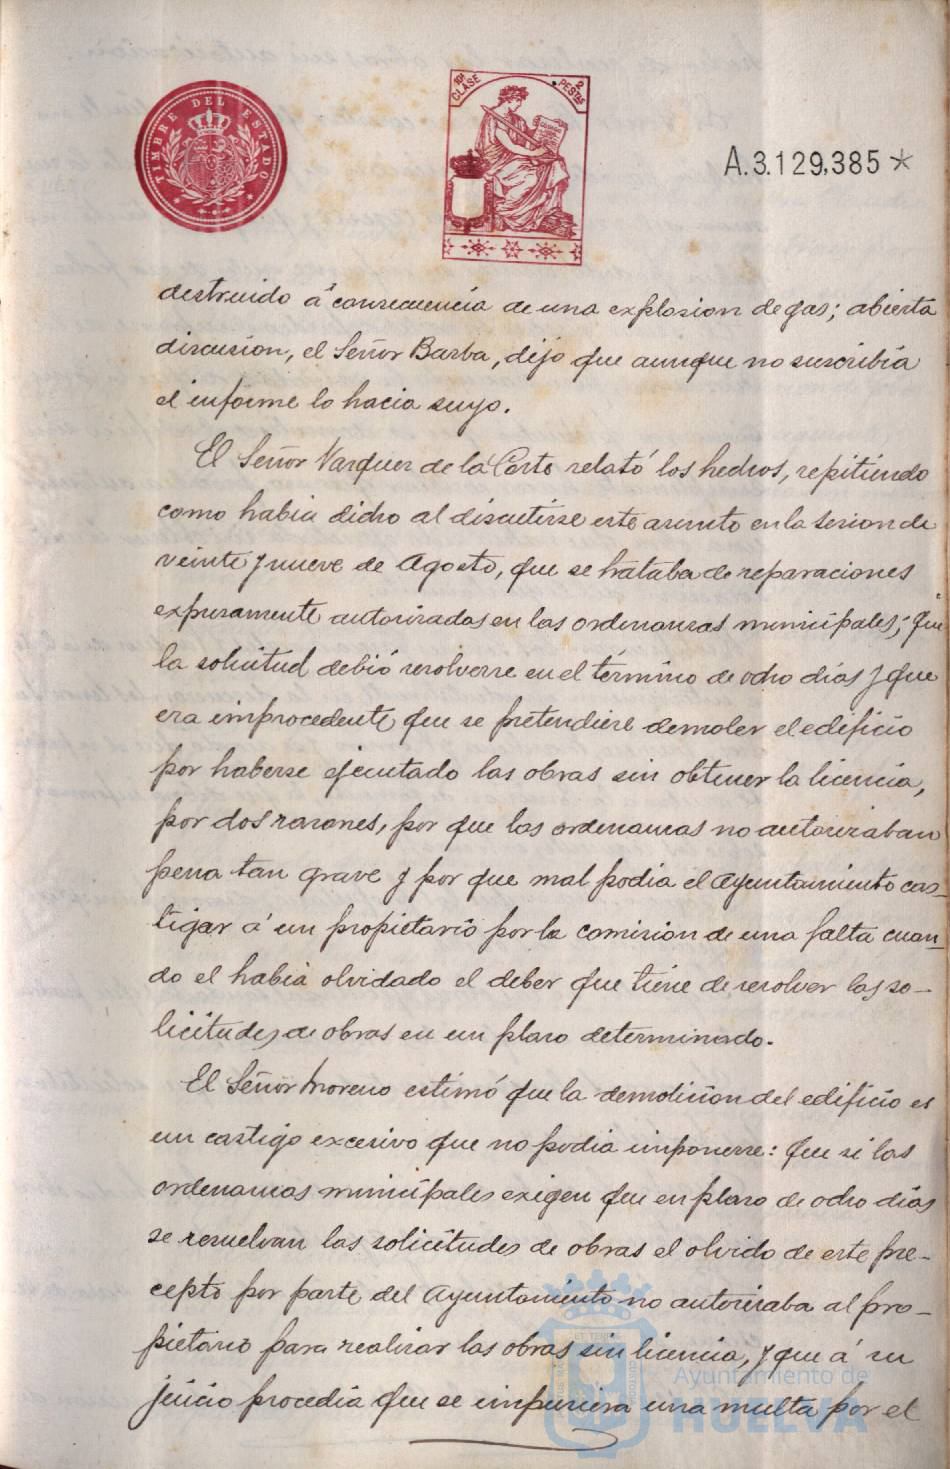 TIMBRE DEL ESTADO
10ª CLASE
2 PESTAS
A.3.129,385 *
destruido á consecuencia de una explosion de gas; abierta
discusion, el Señor Barba, dijo que aunque no suscribia
el informe lo hacia suyo.
El Señor Vazquez de la Corte relató los hechos, repitiendo
como habia dicho al discutirse este asunto en la sesion de
veinte y nueve de Agosto, que se trataba de reparaciones
expresamente autorizadas en las ordenanzas municipales; que
la solicitud debió resolverse en el término de ocho dias y que
era improcedente que se pretendiese demoler el edificio
por haberse ejecutado las obras sin obtener la licencia,
por dos razones, por que las ordenanzas no autorizaban
pena tan grave y por que mal podia el Ayuntamiento cas-
tigar á un propietario por la comision de una falta cuan-
do el habia olvidado el deber que tiene de resolver las so-
licitudes de obras en un plazo determinado.
El Señor Moreno estimó que la demolicion del edificio es
un castigo excesivo que no podia imponerse: que si las
ordenanzas municipales exigen que en plazo de ocho dias
se resuelvan las solicitudes de obras el olvido de este pre-
cepto por parte del Ayuntamiento no autorizaba al pro-
pietario para realizar las obras sin licencia, y que á su
juicio procedia que se impusiera una multa por el
Ayuntamiento de
HUELVA